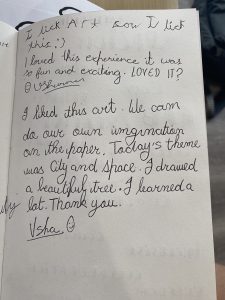 I lick Art sow I lick
this :)
I loved this experience it was
so fun and exciting. LOVED IT?
I liked this art. We cam
do our own imgination
on the paper, Today's theme
was City and space. I drawed
a beautiful tree. I learned a
lot. Thank you.
Usha.